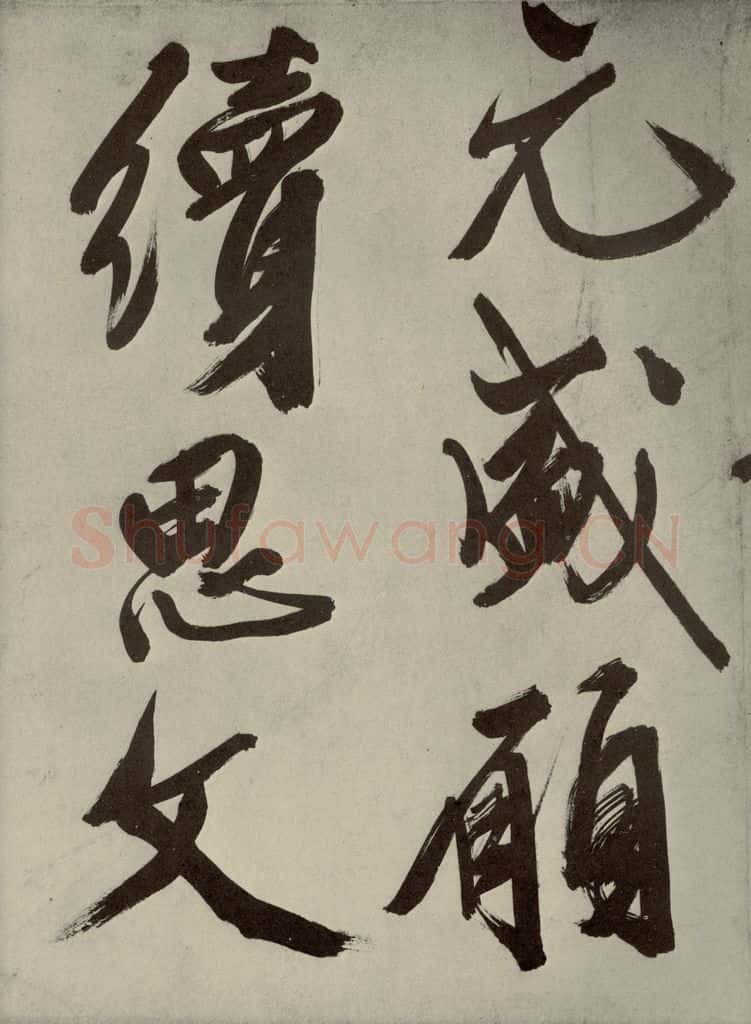 元盛願
續思文
Shufawang.CN